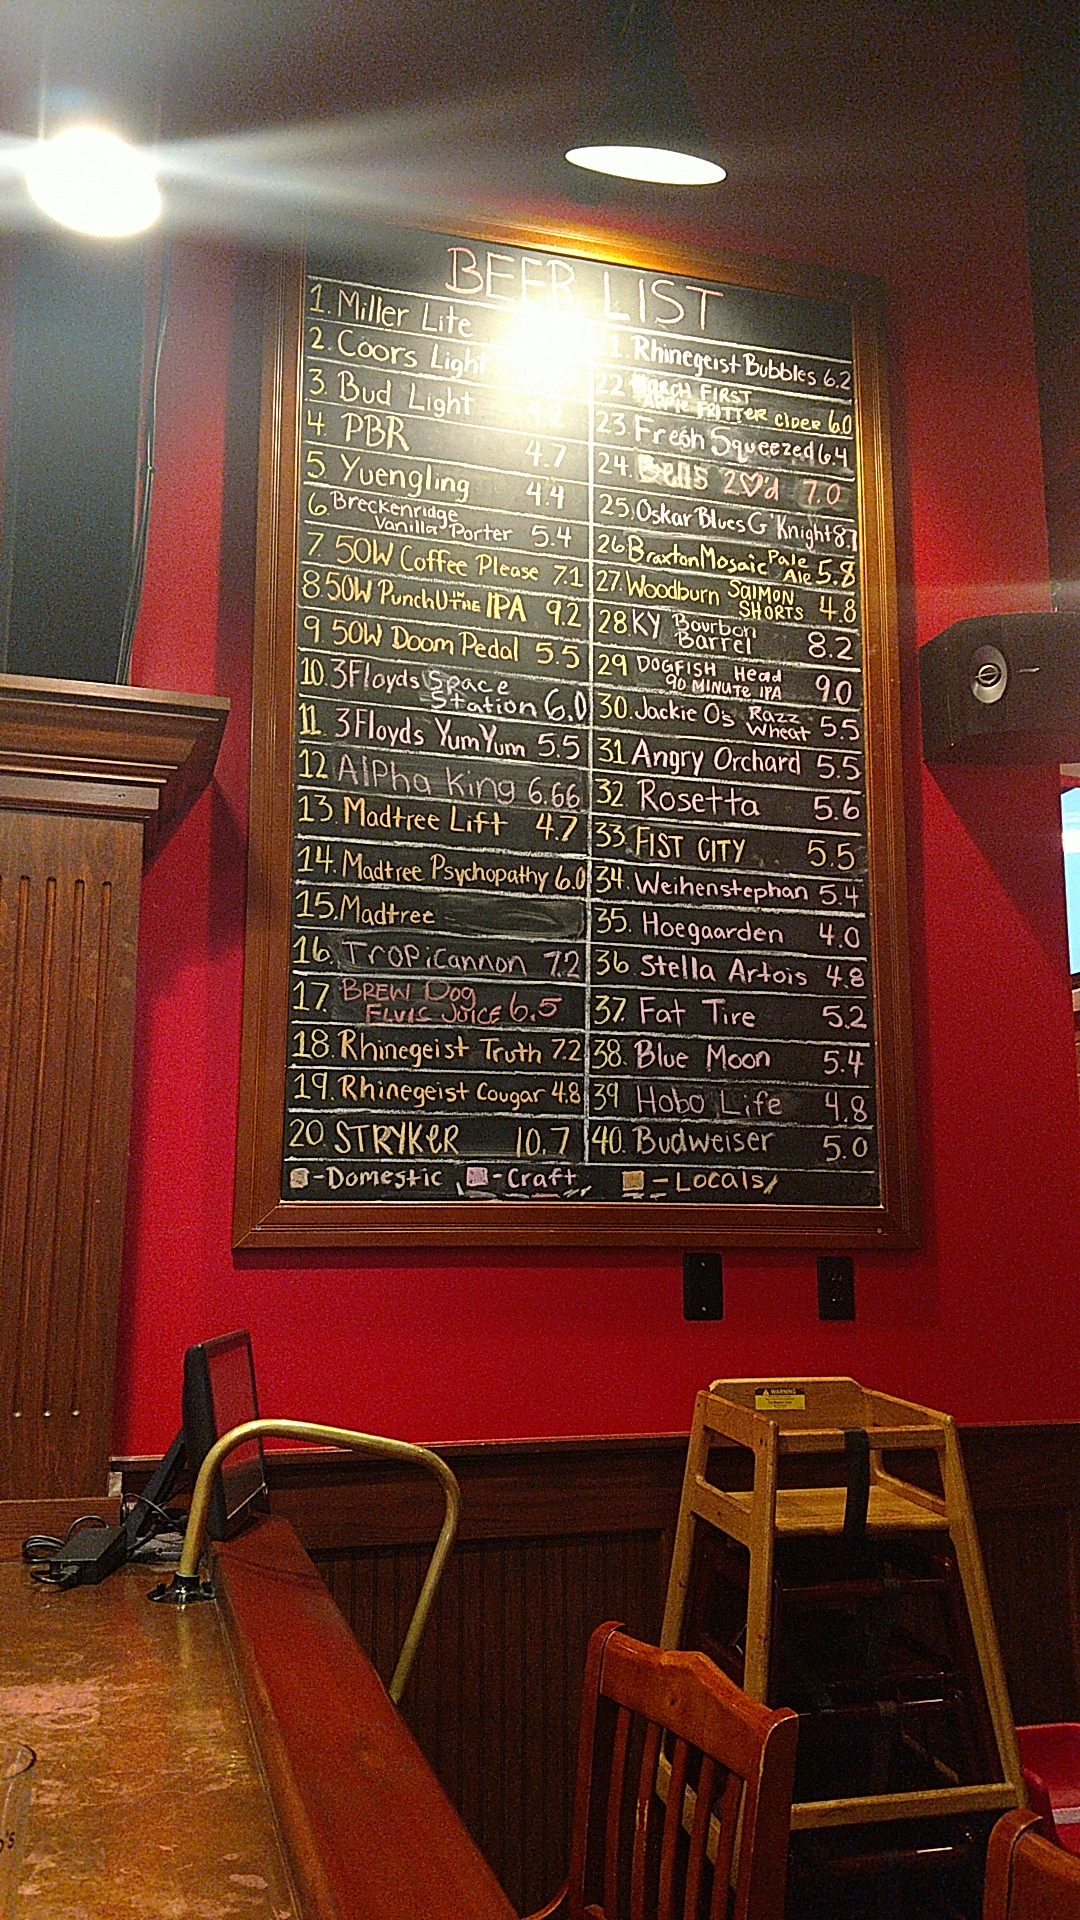 BEER LIST
1. Miller Lite
2. Coors Light
3. Bud Light 4.2
4. PBR 4.7
5. Yuengling 4.4
6. Breckenridge
Vanilla Porter 5.4
7. 50W Coffee Please 7.1
8. 50W PunchU IN THE IPA 9.2
9. 50W Doom Pedal 5.5
10. 3Floyds Space
Station 6.0
11. 3Floyds YumYum 5.5
12 Alpha King 6.66
13. Madtree Lift 4.7
14. Madtree Psychopathy 6.0
15. Madtree
16. TROPiCannon 7.2
17. BREW Dog
ELVIS JUICE 6.5
18. Rhinegeist Truth 7.2
19. Rhinegeist Cougar 4.8
20. STRYKER 10.7
21. Rhinegeist Bubbles 6.2
22 MARCH FIRST
APPLE FRITTER CIDER 6.0
23. Fresh Squeezed 6.4
24. Bells 2♡'d 7.0
25. Oskar Blues G'Knight 8.7
26 Braxton Mosaic Pale
Ale 5.8
27. Woodburn SalMON
SHORTS 4.8
28. KY Bourbon
Barrel 8.2
29 DOGFISH Head
90 MINUTE IPA 9.0
30. Jackie O's Razz
Wheat 5.5
31 Angry Orchard 5.5
32 Rosetta 5.6
33. FIST CITY 5.5
34. Weihenstephan 5.4
35. Hoegaarden 4.0
36. Stella Artois 4.8
37. Fat Tire 5.2
38. Blue Moon 5.4
39 Hobo Life 4.8
40. Budweiser 5.0
-Domestic -Craft -Locals
WARNING